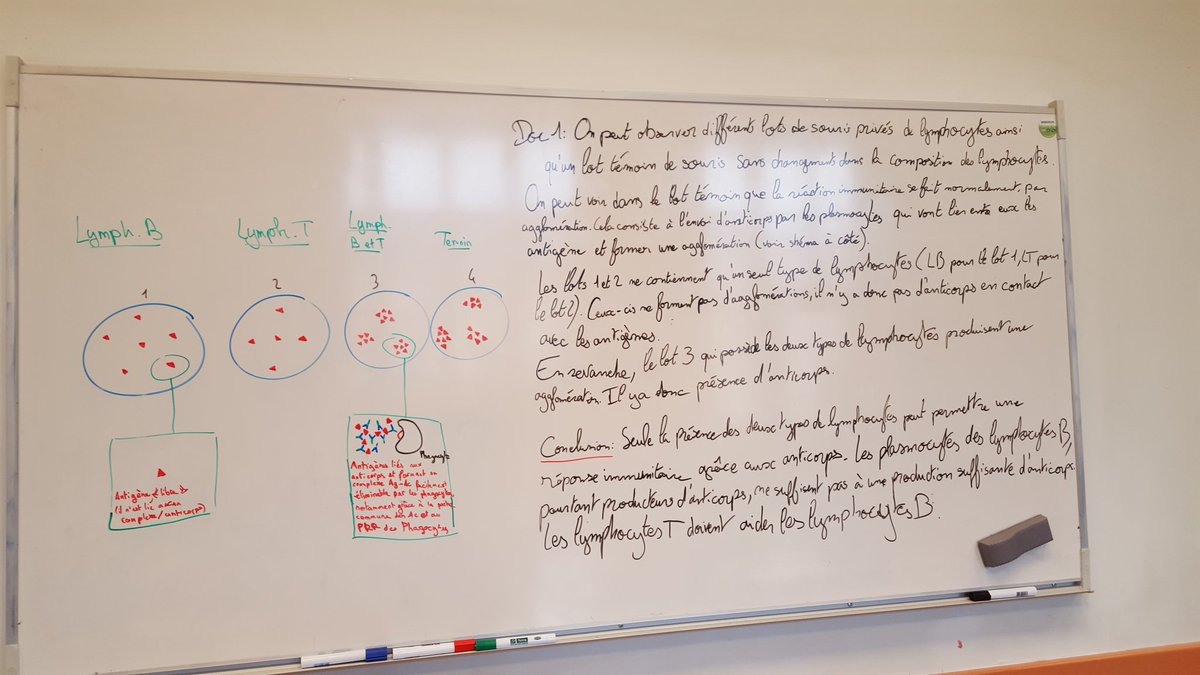 Lymph. B
Lymph. T
Lymph.
B et T
Temoin
1
2
3
4
Antigène est libre
(il n'est lié à aucun
complexe/anticorps)
Phagocyte
Antigènes liés aux
anticorps et formant un
complexe Ag-Ac facilement
éliminable par les phagocytes
notamment grâce à la partie
commune des Ac et au
PRR des Phagocytes
Doc 1: On peut observer différents lots de souris privés de lymphocytes ainsi
qu'un lot témoin de souris sans changements dans la composition des lymphocytes.
On peut voir dans le lot témoin que la réaction immunitaire se fait normalement, par
agglomération. Cela consiste à l'envoi d'anticorps par les plasmocytes qui vont lier entre eux les
antigène et former une agglomération (voir shéma à côté).
Les lots 1 et 2 ne contiennent qu'un seul type de lymphocytes (LB pour le lot 1, LT pour
le lot 2). Ceux-cis ne forment pas d'agglomérations, il n'y a donc pas d'anticorps en contact
avec les antigènes.
En revanche, le lot 3 qui possède les deux types de lymphocytes produisent une
agglomération. Il y a donc présence d'anticorps.
Conclusion: Seule la présence des deux types de lymphocytes peut permettre une
réponse immunitaire grâce aux anticorps. Les plasmocytes des lymphocytes B,
pourtant producteurs d'anticorps, ne suffisent pas à une production suffisante d'anticorps.
Les lymphocytes T doivent aider les lymphocytes B.